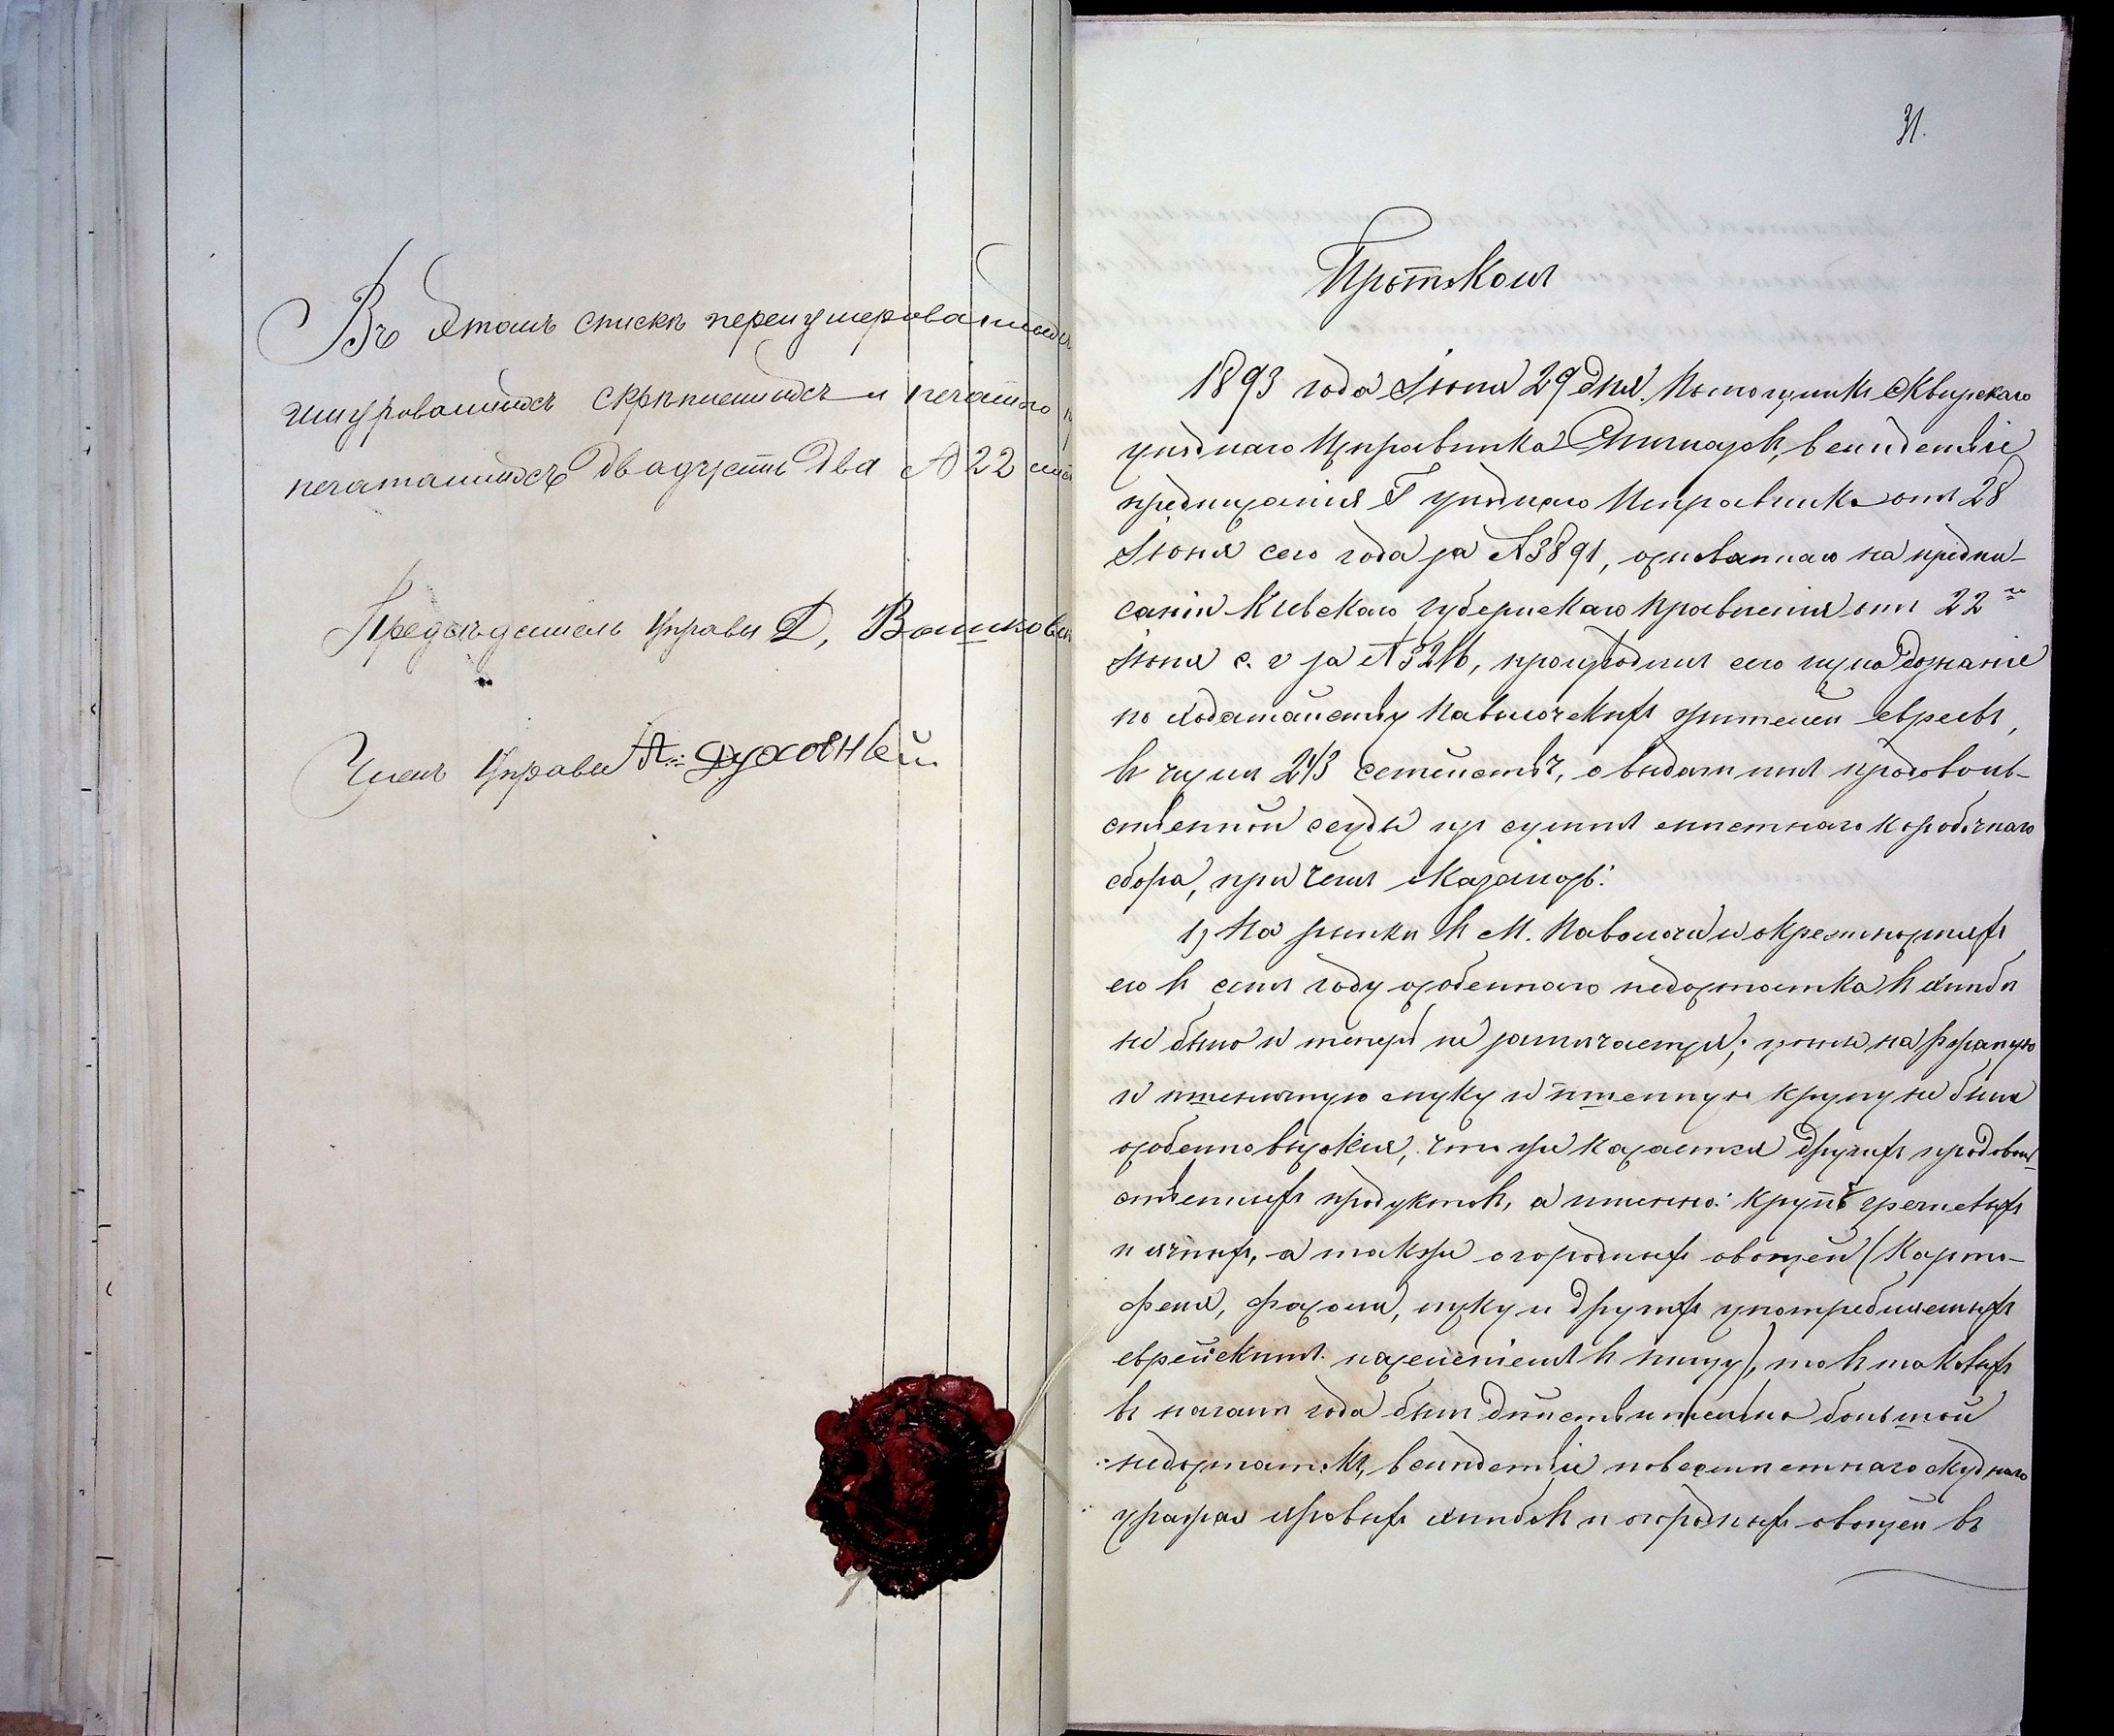 Въ этомъ списке перенумерованныхъ
шнурованныхъ скрѣпленныхъ и печатью
печатанныхъ двадцать два № 22
Предсѣдатель Управы Д,
Членъ Управы А. Духовный
31.
Протоколъ
1893 года Іюня 29 дня. Помощникъ Сквирскаго
уѣзднаго Исправника вслѣдствіе
предписанія Г. уѣзднаго Исправника отъ 28
Іюня сего года за № 3891, основаннаго на предпи-
саніи Кіевскаго Губернскаго Правленія отъ 22го
Іюня с. г за № производилъ сего числа дознаніе
по ходатайству Паволочскихъ жителей евреевъ,
въ числѣ 243 семействъ, о выдачѣ имъ продоволь-
ственной ссуды изъ суммъ мѣстнаго коробочнаго
сбора, при чемъ оказалось:
1) На рынкѣ въ м. Паволочи и окрестностяхъ
его въ семъ году особеннаго недостатка въ хлѣбѣ
не было и теперь не замѣчается; цѣны на ржаную
и пшеничную муку и пшенную крупу не были
особенно высокія, что же касается другихъ продоволь-
ственныхъ продуктовъ, а именно: крупъ гречневыхъ
и ячныхъ, а также огородныхъ овощей (Карто-
феля, фасоли, луку и другихъ употребляемыхъ
еврейскимъ населеніемъ въ пищу), то въ таковыхъ
въ началѣ года былъ дѣйствительно большой
недостатокъ, вслѣдствіе повсемѣстнаго скуднаго
урожая яровыхъ хлѣбовъ и огородныхъ овощей въ